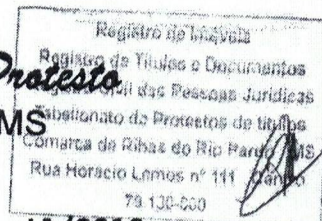 Protesto
MS
Registro de Imóveis
Registro de Títulos e Documentos
Civil das Pessoas Jurídicas
Tabelionato de Protestos de títulos
Comarca de Ribas do Rio Pardo MS
Rua Horácio Lemos nº 111 Centro
79 130-000